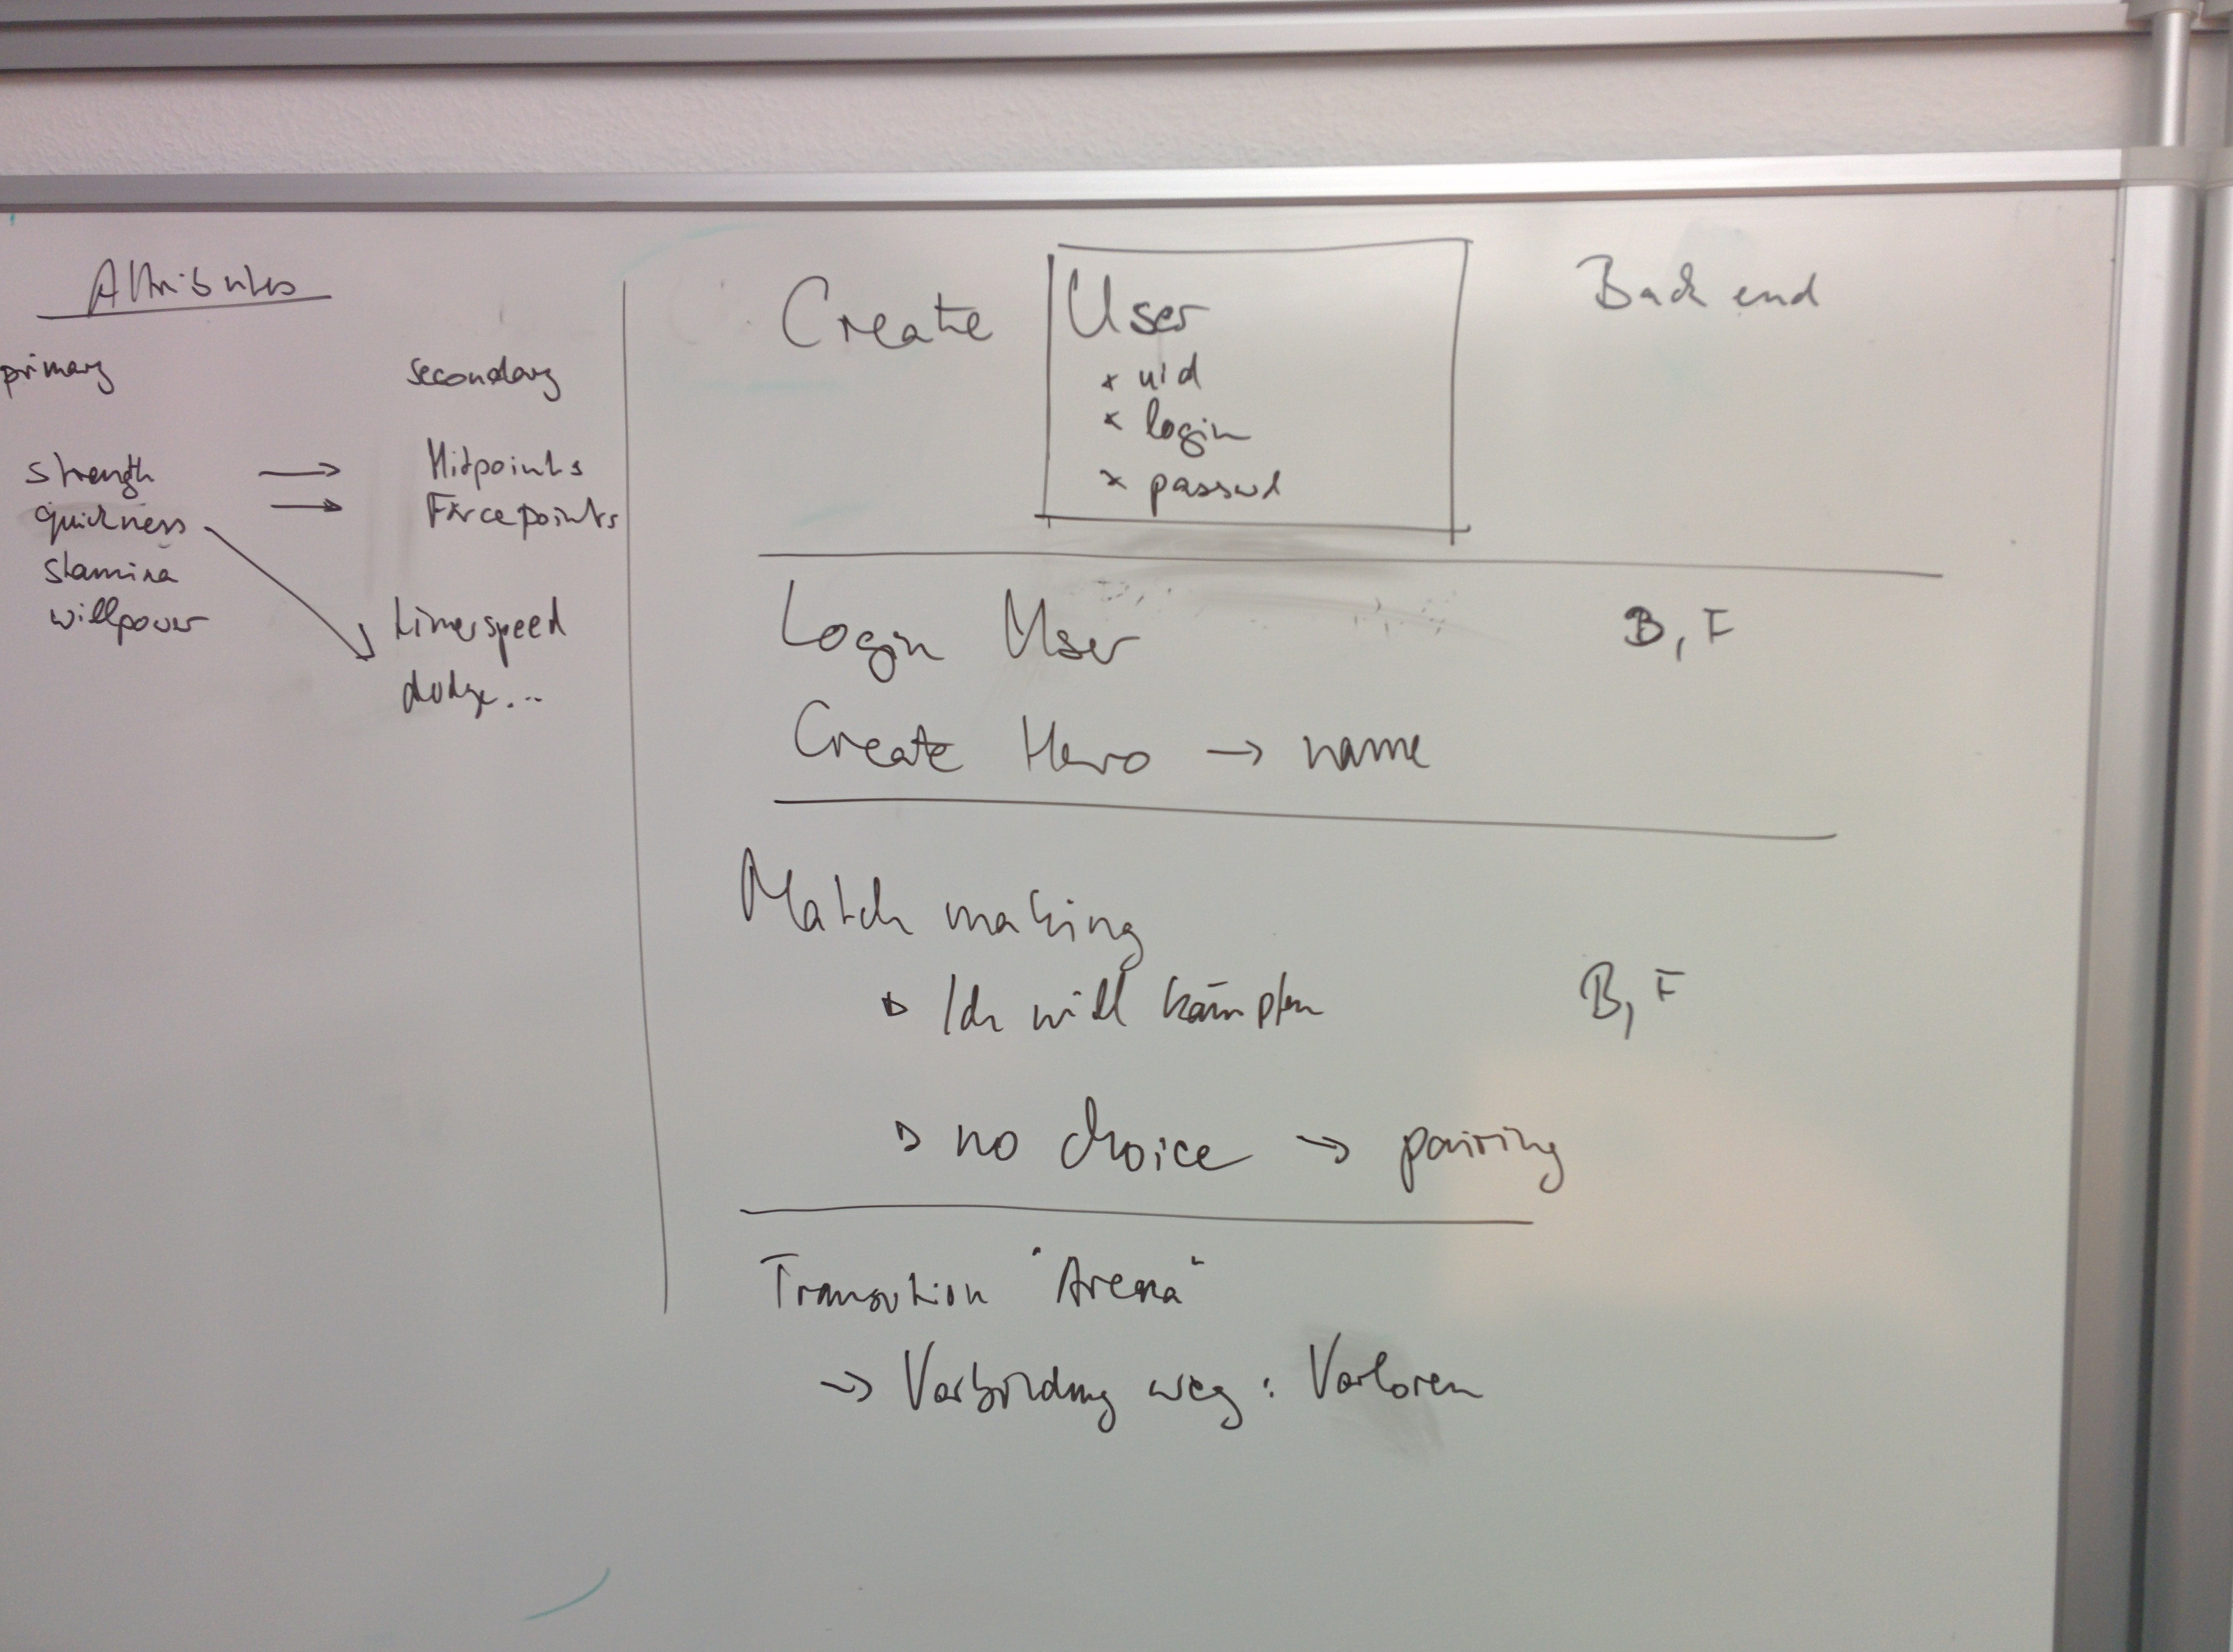 Attributes
primary secondary
strength → Hitpoints
quickness → Forcepoints
stamina
willpower timerspeed
dodge...
Create User Backend
* uid
* login
* passwd
Login User B, F
Create Hero → name
Match making
▹ Ich will kämpfen B, F
▹ no choice → pairing
Transition "Arena"
→ Verbindung weg : Verloren